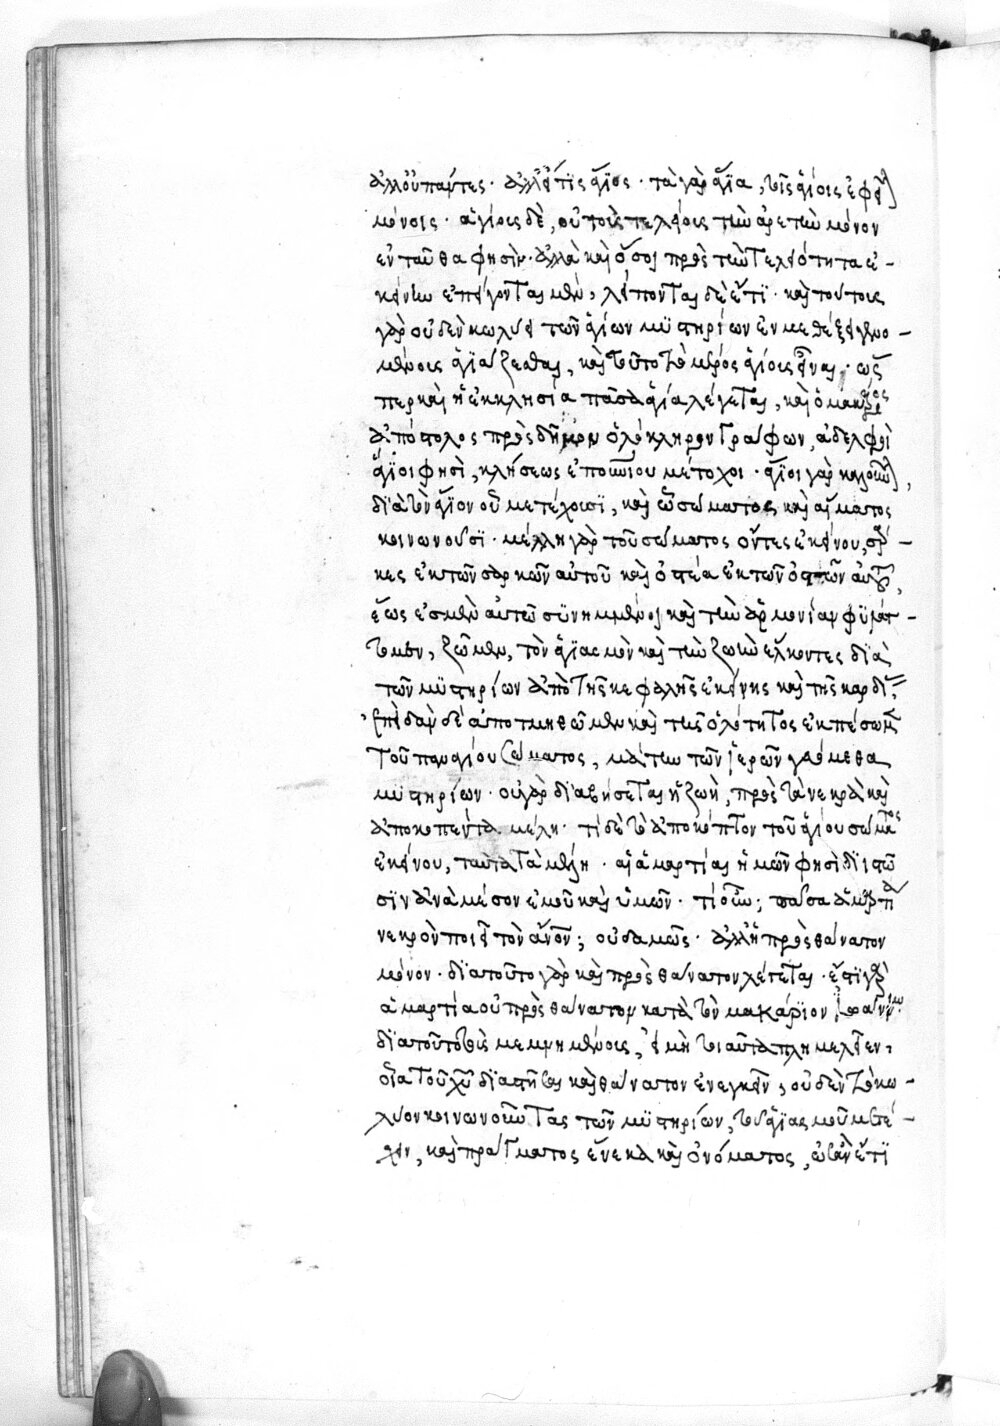 ἀλλ' οὐ πάντες· ἀλλ' εἴ τις ἅγιος· τὰ γὰρ ἅγια, τοῖς ἁγίοις ἐφει
μένοις· ἁγίοις δὲ, οὐ τοὺς τελείους τὴν ἀρετὴν μόνον
ἐνταῦθα φησὶν· ἀλλὰ καὶ ὅσοι πρὸς τὴν τελειότητα ἐ-
κείνην ἐπείγονται μὲν, λείπονται δὲ ἔτι· καὶ τούτοις
γὰρ οὐδὲν κωλύει τῶν ἁγίων μυστηρίων ἐν μεθέξει γινο-
μένοις ἁγιάζεσθαι, καὶ τοῦτο τὸ μέρος ἁγίοις εἶναι· ὥς
περ καὶ ἡ ἐκκλησία πᾶσα ἁγία λέγεται, καὶ ὁ μακάριος
ἀπόστολος πρὸς δῆμον ὁλόκληρον γράφων, ἀδελφοὶ
ἅγιοι φησὶ, κλήσεως ἐπουρανίου μέτοχοι· ἅγιοι γὰρ καλοῦνται,
διὰ τὸν ἅγιον οὗ μετέχουσι, καὶ οὗ σώματος καὶ αἵματος
κοινωνοῦσι· μέλη γὰρ τοῦ σώματος ὄντες ἐκείνου, σάρ-
κες ἐκ τῶν σαρκῶν αὐτοῦ καὶ ὀστέα ἐκ τῶν ὀστέων αὐτοῦ,
ἕως ἐσμὲν αὐτῷ συνημμένοι καὶ τὴν ἁρμονίαν φυλάτ-
τομεν, ζῶμεν, τὸν ἁγιασμὸν καὶ τὴν ζωὴν ἕλκοντες διὰ
τῶν μυστηρίων ἀπὸ τῆς κεφαλῆς ἐκείνης καὶ τῆς καρδίας·
ἐπειδὰν δὲ ἀποτμηθῶμεν καὶ τῆς ὁλότητος ἐκπέσωμεν
τοῦ παναγίου σώματος, μάτην τῶν ἱερῶν γευόμεθα
μυστηρίων· οὐ γὰρ διαβήσεται ἡ ζωὴ, πρὸς τὰ νεκρὰ καὶ
ἀποκοπέντα μέλη· τί δὲ τὸ ἀποκόπτον τοῦ ἁγίου σώματος
ἐκείνου, ταῦτα τὰ μέλη· αἱ ἁμαρτίαι ἡμῶν φησὶ διιστῶ
σιν ἀνὰ μέσον ἐμοῦ καὶ ὑμῶν· τί οὖν; πᾶσα ἁμαρτία
νεκρὸν ποιεῖ τὸν ἄνον; οὐδαμῶς· ἀλλ' ἡ πρὸς θάνατον
μόνον· διατοῦτο γὰρ καὶ πρὸς θάνατον λέγεται· ἔστι γὰρ
ἁμαρτία οὐ πρὸς θάνατον κατὰ τὸν μακάριον Ἰωάννην
διατοῦτο τοῖς μεμυημένοις, εἰ μὴ τοιαῦτα πλημελεῖεν,
οἷα τοῦ χυ διαστῆσαι καὶ θάνατον ἐνεγκεῖν, οὐδὲν τὸ κω-
λύον κοινωνοῦντας τῶν μυστηρίων, τοῦ ἁγιασμοῦ μετέ-
χειν, καὶ πράγματος ἕνεκα καὶ ὀνόματος, ὡσὰν ἔτι